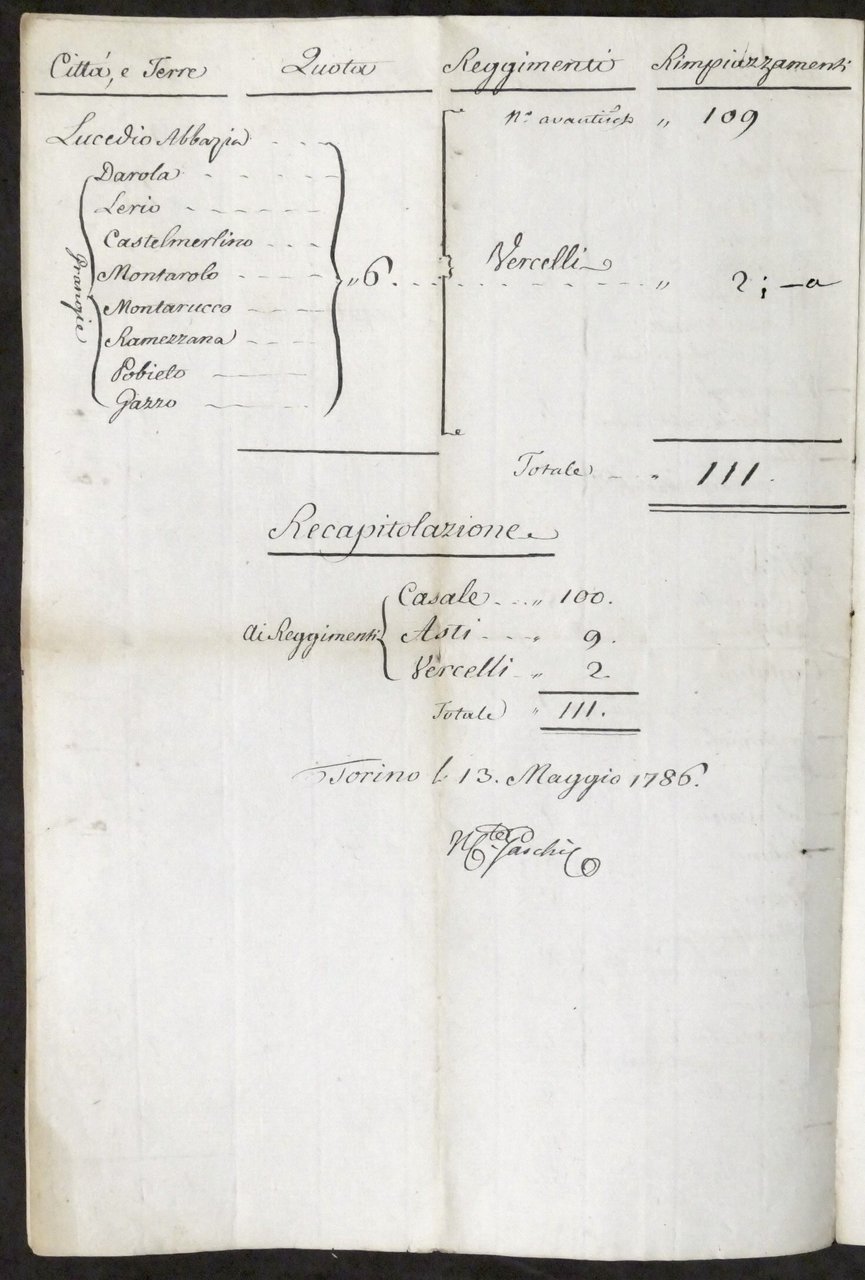 Cittá, e Terre Quota Reggimenti Rimpiazzamenti
N.º " 109
Lucedio Abbazia
Darola
Lerio
Castelmerlino
Grangie
Montarolo
Vercelli
" 6. " 2 ;
Montarucco
Ramezzana
Pobieto
Gazzo
Totale " 111.
Recapitolazione
Casale " 100.
ai Reggimenti Asti " 9.
Vercelli " 2
Totale " 111.
Torino li 13. Maggio 1786.